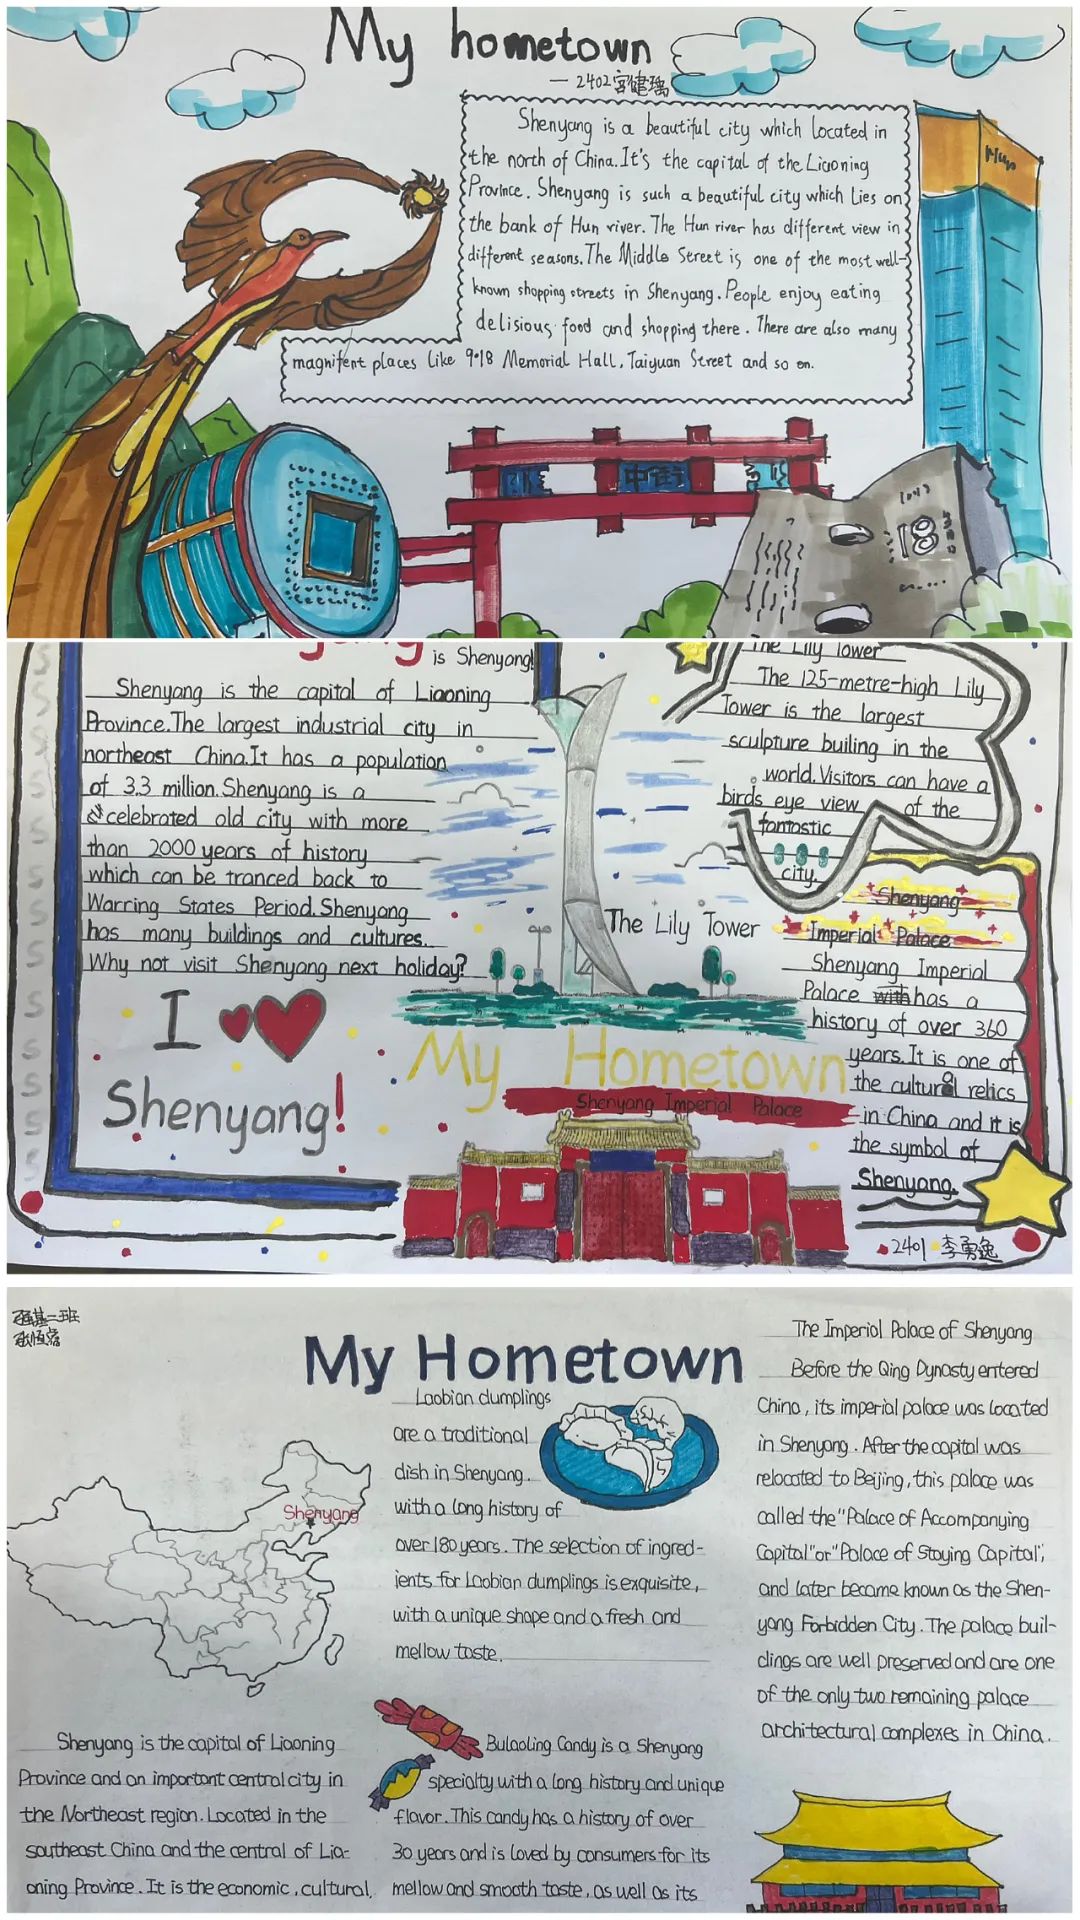 My hometown
— 2402宫健瑀
Shenyang is a beautiful city which located in
the north of China. It's the capital of the Liaoning
Province. Shenyang is such a beautiful city which lies on
the bank of Hun river. The Hun river has different view in
different seasons. The Middle Street is one of the most well-
known shopping streets in Shenyang. People enjoy eating
delisious food and shopping there. There are also many
magnifent places like 9·18 Memorial Hall, Taiyuan Street and so on.
中街
18
is Shenyang!
Shenyang is the capital of Liaoning
Province. The largest industrial city in
northeast China. It has a population
of 3.3 million. Shenyang is a
celebrated old city with more
than 2000 years of history
which can be tranced back to
Warring States Period. Shenyang
has many buildings and cultures.
Why not visit Shenyang next holiday?
I
Shenyang!
The Lily Tower
The 125-metre-high Lily
Tower is the largest
sculpture builing in the
world. Visitors can have a
birds eye view of the
fantastic
city.
The Lily Tower
My Hometown
Shenyang Imperial Palace
Shenyang
Imperial Palace
Shenyang Imperial
Palace with has a
history of over 360
years. It is one of
the cultural relics
in China and it is
the symbol of
Shenyang.
2401 李勇逸
My Hometown
Shenyang
Laobian dumplings
are a traditional
dish in Shenyang.
with a long history of
over 180 years. The selection of ingred-
ients for Laobian dumplings is exquisite,
with a unique shape and a fresh and
mellow taste.
The Imperial Palace of Shenyang
Before the Qing Dynasty entered
China, its imperial palace was located
in Shenyang. After the capital was
relocated to Beijing, this palace was
called the "Palace of Accompanying
Capital" or "Palace of Staying Capital",
and later became known as the Shen-
yang Forbidden City. The palace buil-
dings are well preserved and are one
of the only two remaining palace
architectural complexes in China.
Shenyang is the capital of Liaoning
Province and an important central city in
the Northeast region. Located in the
southeast China and the central of Lia-
oning Province. It is the economic, cultural,
Bulaoling Candy is a Shenyang
specialty with a long history and unique
flavor. This candy has a history of over
30 years and is loved by consumers for its
mellow and smooth taste, as well as its